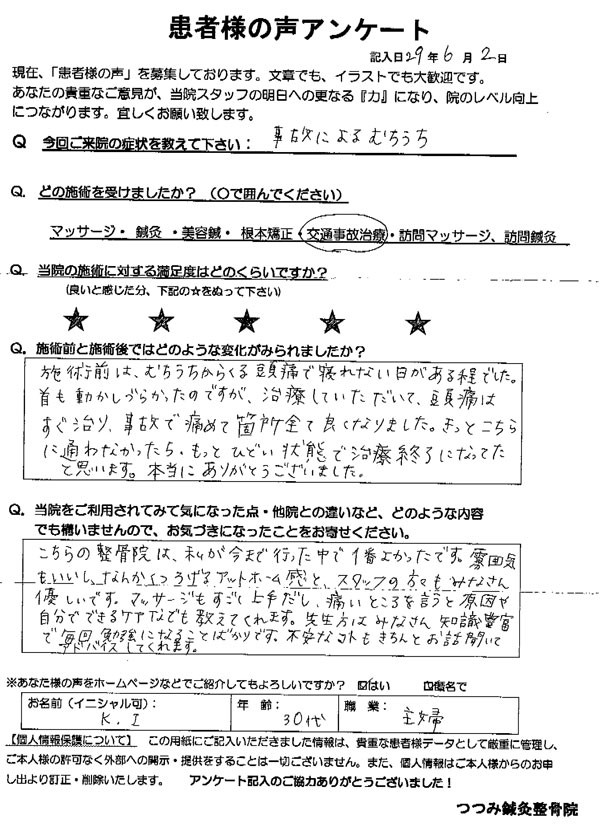 患者様の声アンケート
記入日29年6月2日
現在、「患者様の声」を募集しております。文章でも、イラストでも大歓迎です。
あなたの貴重なご意見が、当院スタッフの明日への更なる『力』になり、院のレベル向上
につながります。宜しくお願い致します。
Q 今回ご来院の症状を教えて下さい： 事故によるむちうち
Q. どの施術を受けましたか？（〇で囲んでください）
マッサージ・ 鍼灸 ・美容鍼・ 根本矯正・交通事故治療・訪問マッサージ、訪問鍼灸
Q. 当院の施術に対する満足度はどのくらいですか？
（良いと感じた分、下記の☆をぬって下さい）
★ ★ ★ ★ ★
Q. 施術前と施術後ではどのような変化がみられましたか？
施術前は、むちうちからくる頭痛で寝れない日がある程でした。
首も動かしづらかったのですが、治療していただいて、頭痛は
すぐ治り、事故で痛めて箇所全て良くなりました。きっとこちら
に通わなかったら、もっとひどい状態で治療終了になってた
と思います。本当にありがとうございました。
Q. 当院をご利用されてみて気になった点・他院との違いなど、どのような内容
でも構いませんので、お気づきになったことをお寄せください。
こちらの整骨院は、私が今まで行った中で1番よかったです。雰囲気
もいいし、なんかくつろげるアットホーム感と、スタッフの方々もみなさん
優しいです。マッサージもすごく上手だし、痛いところを言うと原因や
自分でできるケアなども教えてくれます。先生方はみなさん知識豊富
で毎回勉強になることばかりです。不安なコトもきちんとお話聞いて
アドバイスしてくれます。
※あなた様の声をホームページなどでご紹介してもよろしいですか？ ☑はい □匿名で
お名前（イニシャル可）： K.I 年 齢： 30代 職 業： 主婦
【個人情報保護について】 この用紙にご記入いただきました情報は、貴重な患者様データとして厳重に管理し、
ご本人様の許可なく外部への開示・提供をすることは一切ございません。また、個人情報はご本人様からのお申
し出より訂正・削除いたします。 アンケート記入のご協力ありがとうございました！
つつみ鍼灸整骨院